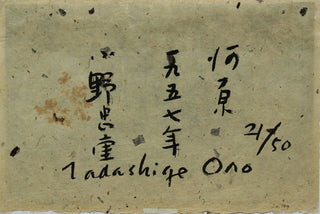 河原
一九五七年
小野忠重
21/50
Tadashige Ono